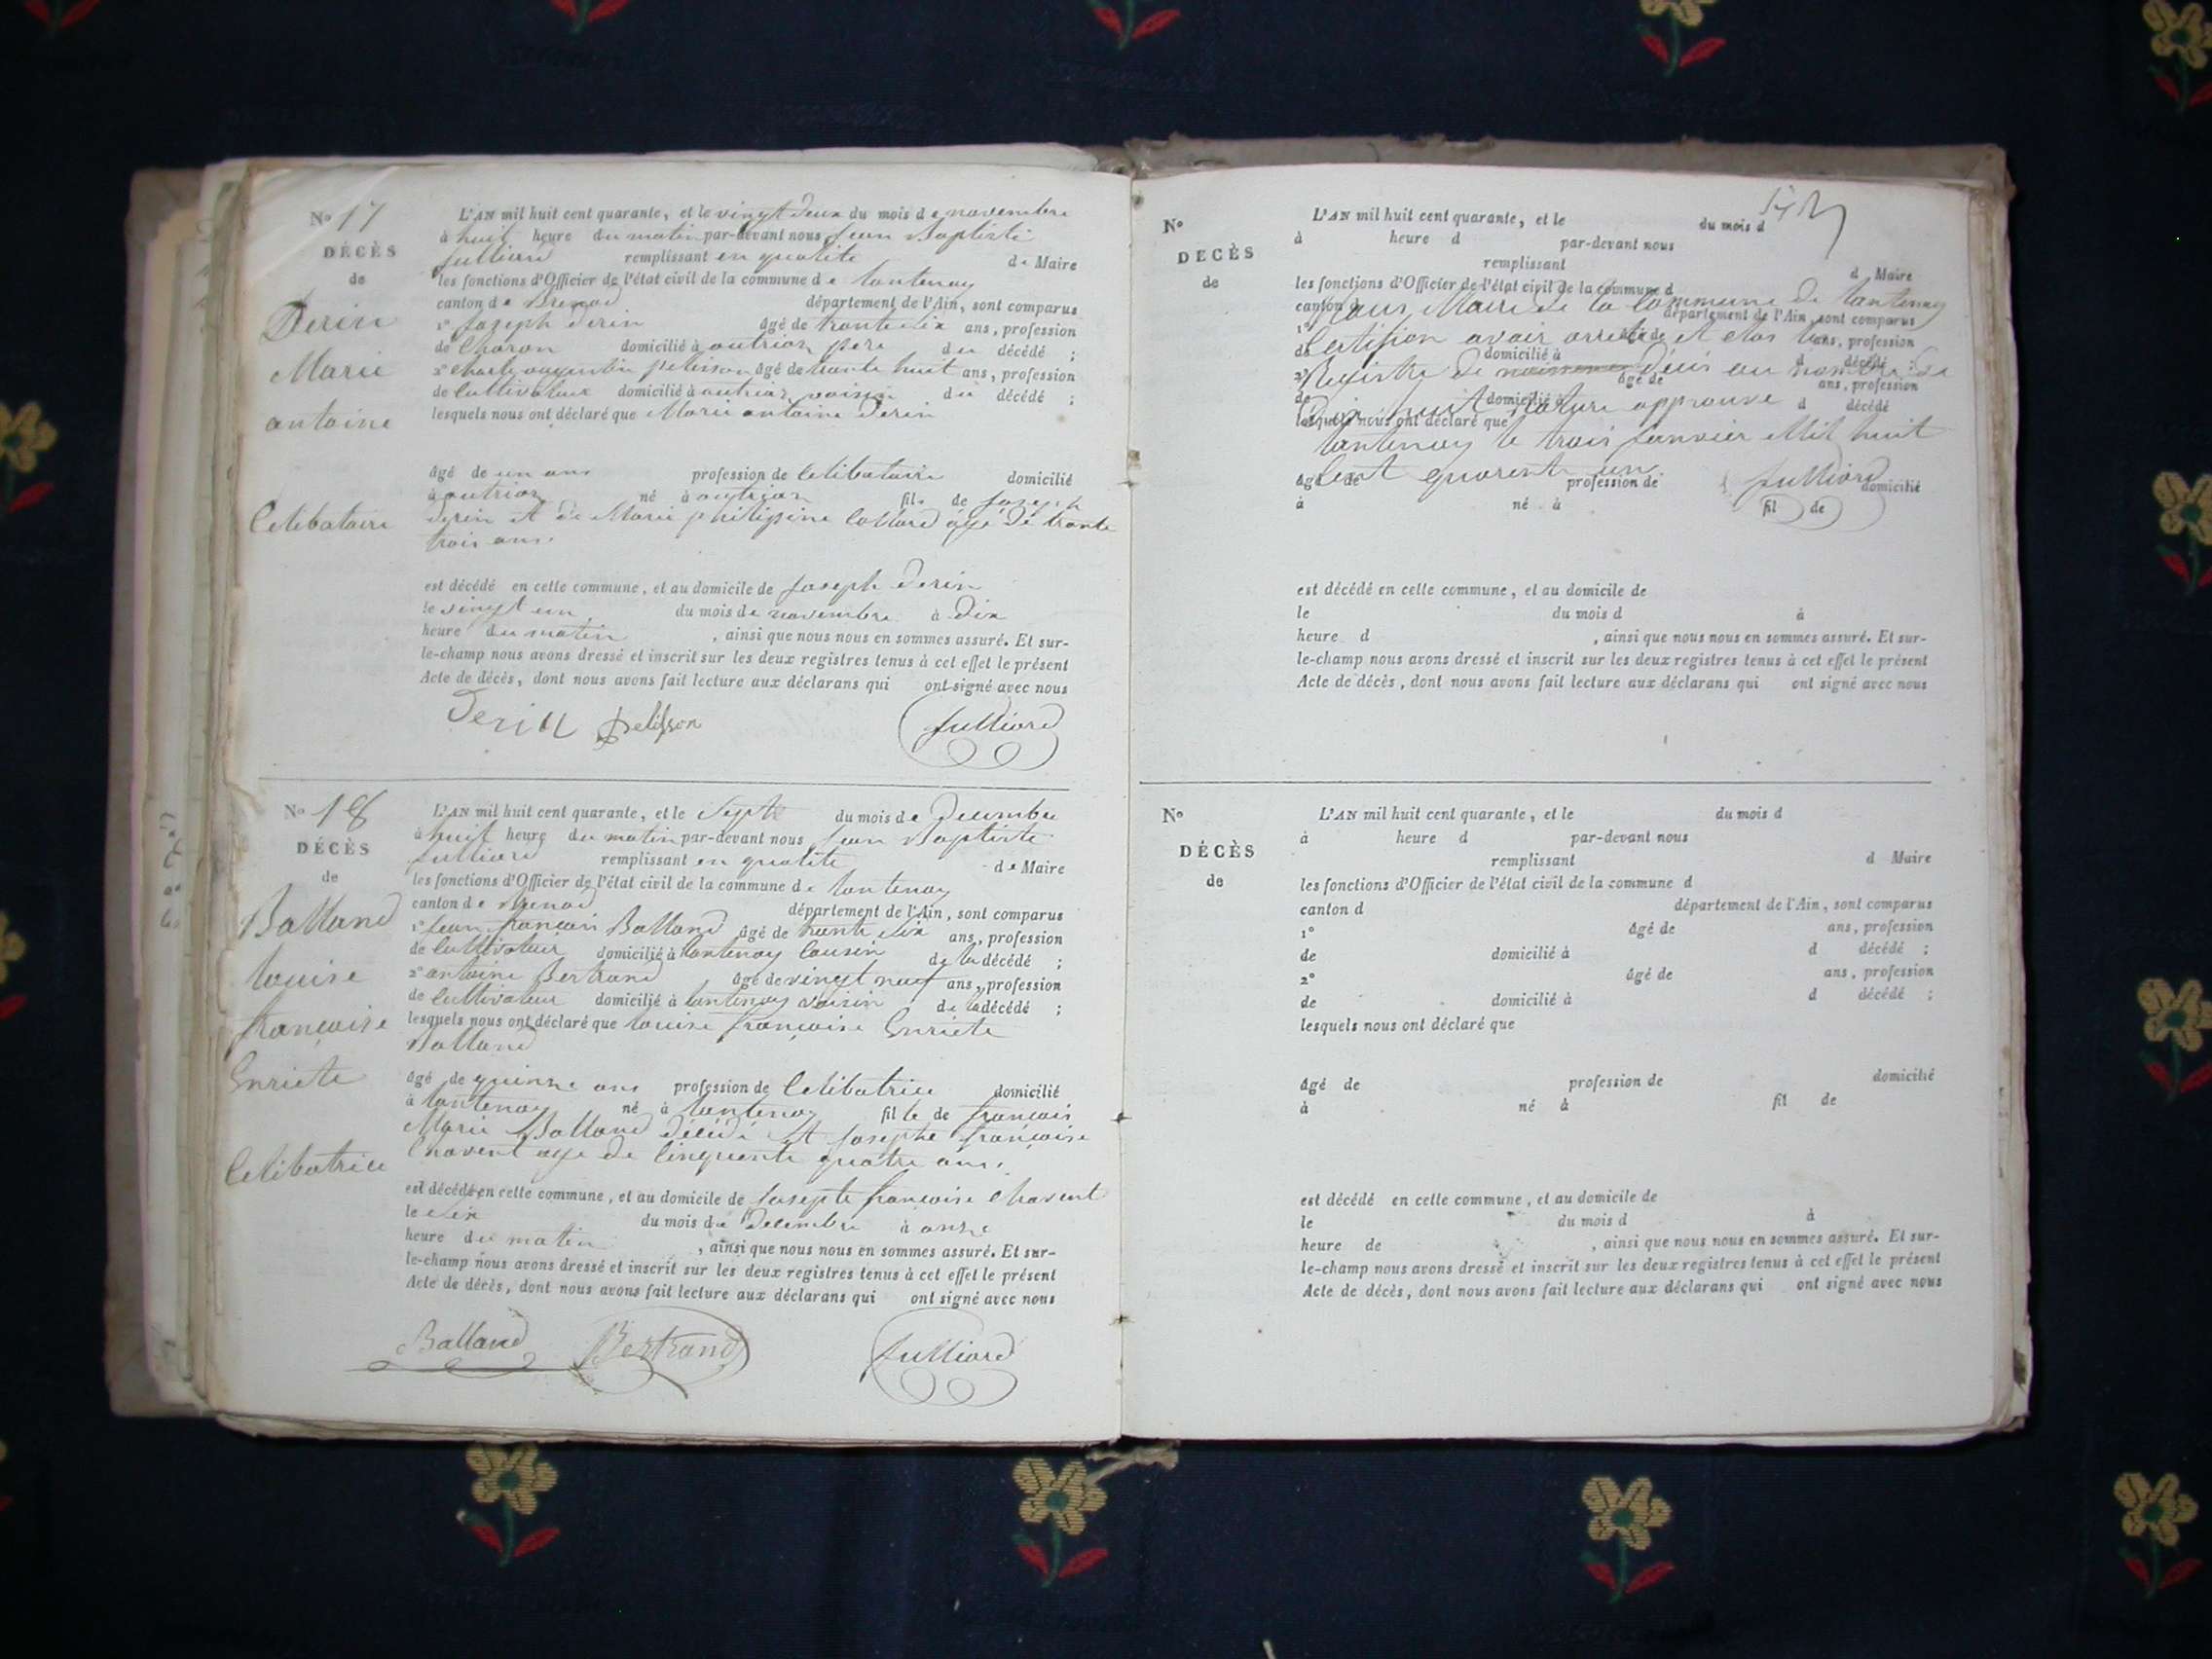 No 17
DÉCÈS
de
Derin
Marie
antoine
Celibataire
L'AN mil huit cent quarante, et le vingt deux du mois de novembre
à huit heure du matin par-devant nous Jean Baptiste
Julliard remplissant en qualité de Maire
les fonctions d'Officier de l'état civil de la commune de Lantenay
canton de Brenod département de l'Ain, sont comparus
1° Joseph Derin âgé de trante six ans, profession
de Charon domicilié à outriaz pere du décédé ;
2° Charle pelisson âgé de trante huit ans, profession
de Cultivateur domicilié à outriaz voisin du décédé ;
lesquels nous ont déclaré que Marie antoine Derin
âgé de un ans profession de Celibataire domicilié
à outriaz né à outriaz fils de Joseph
Derin et de Marie philipine Collard âgé de trante
trois ans.
est décédé en cette commune, et au domicile de Joseph Derin
le vingt un du mois de novembre à dix
heure du matin, ainsi que nous nous en sommes assuré. Et sur-
le-champ nous avons dressé et inscrit sur les deux registres tenus à cet effet le présent
Acte de décès, dont nous avons fait lecture aux déclarans qui ont signé avec nous
Derin Pelisson Julliard
No 18
DÉCÈS
de
Balland
Louise
françoise
Enriete
Celibatrice
L'AN mil huit cent quarante, et le Sept du mois de Decembre
à huit heure du matin par-devant nous Jean Baptiste
Julliard remplissant en qualité de Maire
les fonctions d'Officier de l'état civil de la commune de Lantenay
canton de Brenod département de l'Ain, sont comparus
1° Jean françois Balland âgé de trante six ans, profession
de Cultivateur domicilié à Lantenay Cousin de la décédé ;
2° antoine Bertrand âgé de vingt neuf ans, profession
de Cultivateur domicilié à Lantenay voisin de la décédé ;
lesquels nous ont déclaré que Louise françoise Enriete
Balland
âgé de quinze ans profession de Celibatrice domicilié
à Lantenay né à Lantenay fille de françois
Marie Balland décédé et Josephe françoise
Chavent age de Cinquente quatre ans.
est décédé en cette commune, et au domicile de Josepte françoise Chavent
le Six du mois de Decembre à onze
heure du matin, ainsi que nous nous en sommes assuré. Et sur-
le-champ nous avons dressé et inscrit sur les deux registres tenus à cet effet le présent
Acte de décès, dont nous avons fait lecture aux déclarans qui ont signé avec nous
Balland Bertrand Julliard
No
DÉCÈS
de
L'AN mil huit cent quarante, et le du mois d
à heure d par-devant nous
remplissant d Maire
les fonctions d'Officier de l'état civil de la commune d
canton d département de l'Ain, sont comparus
1° âgé de ans, profession
de domicilié à d décédé ;
2° âgé de ans, profession
de domicilié à d décédé
lesquels nous ont déclaré que
Nous Maire de la Commune de Lantenay
Certifion avoir arreté et clos Les
Registre de naissance Décis au nombre de
Dix huit rature approuve
Lantenay le trois Janvier Mil huit
Cent quarente un. Julliard
âgé de profession de domicilié
à né à fil de
est décédé en cette commune, et au domicile de
le du mois d à
heure d , ainsi que nous nous en sommes assuré. Et sur-
le-champ nous avons dressé et inscrit sur les deux registres tenus à cet effet le présent
Acte de décès, dont nous avons fait lecture aux déclarans qui ont signé avec nous
No
DÉCÈS
de
L'AN mil huit cent quarante, et le du mois d
à heure d par-devant nous
remplissant d Maire
les fonctions d'Officier de l'état civil de la commune d
canton d département de l'Ain, sont comparus
1° âgé de ans, profession
de domicilié à d décédé ;
2° âgé de ans, profession
de domicilié à d décédé ;
lesquels nous ont déclaré que
âgé de profession de domicilié
à né à fil de
est décédé en cette commune, et au domicile de
le du mois d à
heure de , ainsi que nous nous en sommes assuré. Et sur-
le-champ nous avons dressé et inscrit sur les deux registres tenus à cet effet le présent
Acte de décès, dont nous avons fait lecture aux déclarans qui ont signé avec nous